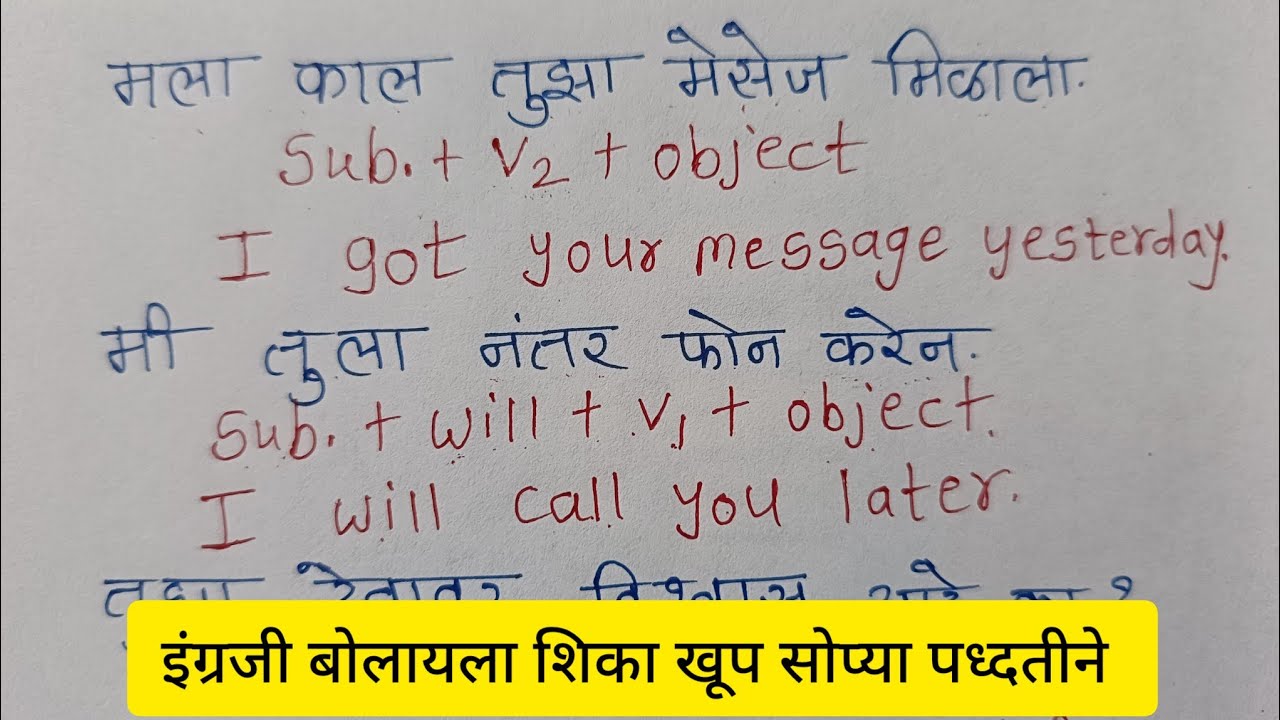 मला काल तुझा मेसेज मिळाला.
Sub. + V2 + object
I got your message yesterday.
मी तुला नंतर फोन करेन.
Sub. + will + V1 + object.
I will call you later.
विश्वास आहे का?
इंग्रजी बोलायला शिका खूप सोप्या पध्दतीने